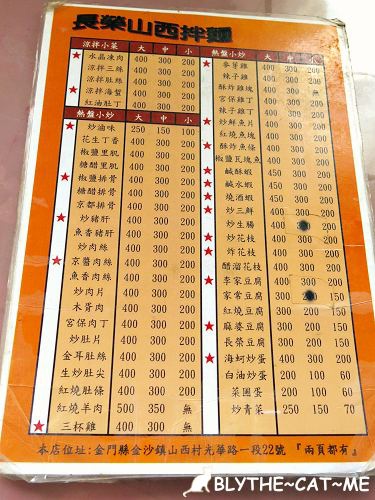 長榮山西拌麵
涼拌小菜 大 中 小
★ 水晶凍肉 400 300 200
涼拌三絲 400 300 200
涼拌肚絲 400 300 200
★ 涼拌海蜇 400 300 200
紅油肚丁 400 300 200
熱盤小炒 大 中 小
★ 炒滷味 250 150 100
花生丁香 400 300 200
椒鹽里肌 400 300 200
糖醋里肌 400 300 200
★ 椒鹽排骨 400 300 200
糖醋排骨 400 300 200
京都排骨 400 300 200
★ 炒豬肝 400 300 200
魚香豬肝 400 300 200
炒肉絲 400 300 200
★ 京醬肉絲 400 300 200
魚香肉絲 400 300 200
炒肉片 400 300 200
木胥肉 400 300 200
宮保肉丁 400 300 200
炒肚片 400 300 200
金耳肚絲 400 300 200
生炒肚尖 400 300 200
紅燒肚條 400 300 200
紅燒羊肉 500 350 無
★ 三杯雞 400 300 無
熱盤小炒 大 中 小
★ 麥芽雞 400 300 200
辣子雞 400 300 200
400 300 無
宮保雞丁 400 300 200
辣子雞丁 400 300 200
★ 炒鮮魚片 400 300 200
紅燒魚塊 400 300 200
★ 酥炸魚條 400 300 200
椒鹽瓦塊魚 400 300 200
★ 鹹酥蝦 450 300 200
★ 鹹水蝦 450 300 200
★ 燒酒蝦 450 300 200
★ 炒三鮮 400 300 200
炒生腸 400 200
★ 炒花枝 400 300 200
★ 炸花枝 400 300 200
醋溜花枝 400 300 200
★ 李家豆腐 400 300 200
家常豆腐 300 150
紅燒豆腐 300 200 150
★ 麻婆豆腐 300 200 150
長榮豆腐 400 300 200
★ 海蚵炒蛋 400 300 200
白油炒蛋 200
菜圃蛋 200
炒青菜 250 150 70
本店位址:金門縣金沙鎮山西村光華路一段22號 『兩頁都有』
BLYTHE~CAT~ME